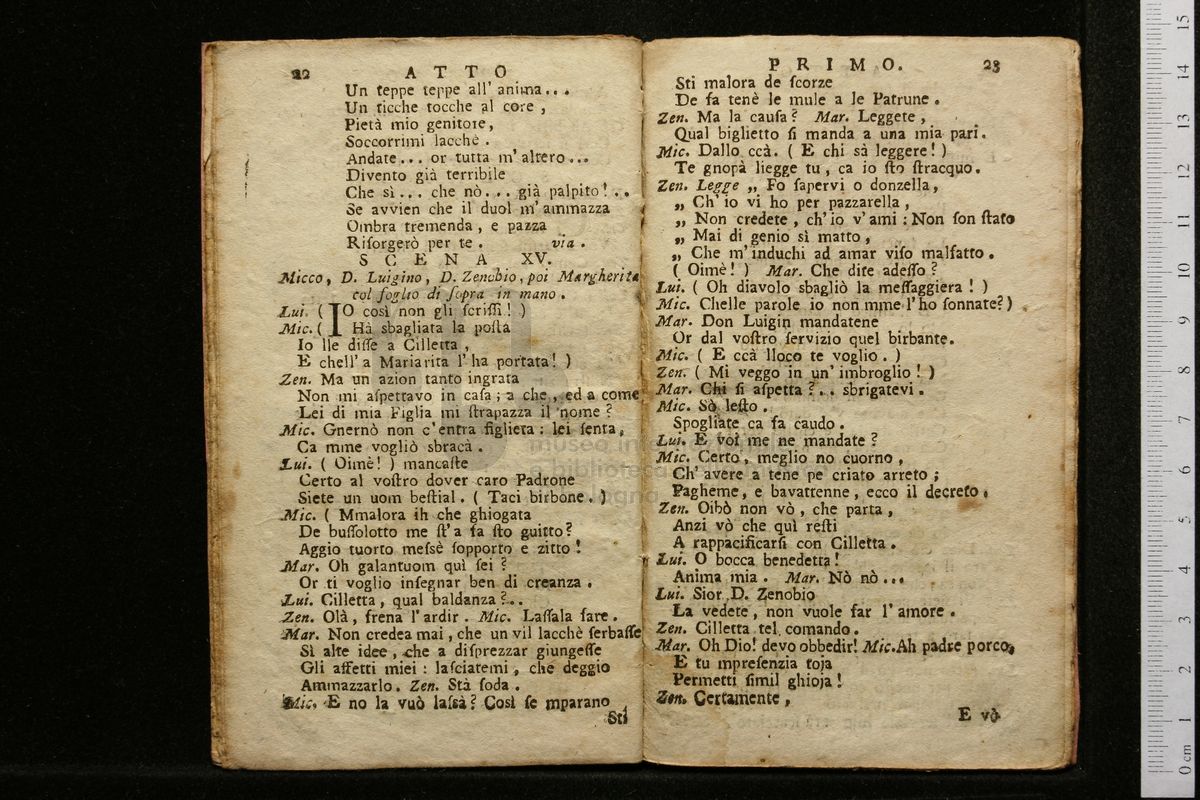 22 ATTO
Un teppe teppe all' anima...
Un ticche tocche al core,
Pietà mio genitore,
Soccorrimi lacchè.
Andate... or tutta m' altero...
Divento già terribile
Che sì... che nò... già palpito!..
Se avvien che il duol m' ammazza
Ombra tremenda, e pazza
Riſorgerò per te. via.
SCENA XV.
Micco, D. Luigino, D. Zenobio, poi Margherita
col foglio di ſopra in mano.
Lui. ( IO così non gli ſcriſſi! )
Mic. ( Hà sbagliata la poſta
Io lle diſſe a Cilletta,
E chell' a Mariarita l' ha portata! )
Zen. Ma un azion tanto ingrata
Non mi aſpettavo in caſa; a che, ed a come
Lei di mia Figlia mi ſtrapazza il nome?
Mic. Gnernò non c' entra figlieta: lei ſenta,
Ca mme vogliò sbracà.
Lui. ( Oimè! ) mancaſte
Certo al voſtro dover caro Padrone
Siete un uom beſtial. ( Taci birbone. )
Mic. ( Mmalora ih che ghiogata
De buſſolotto me ſt' a fa ſto guitto?
Aggio tuorto meſsè ſopporto e zitto!
Mar. Oh galantuom quì ſei?
Or ti voglio inſegnar ben di creanza.
Lui. Cilletta, qual baldanza?..
Zen. Olà, frena l' ardir. Mic. Laſſala fare.
Mar. Non credea mai, che un vil lacchè ſerbaſſe
Sì alte idee, che a diſprezzar giungeſſe
Gli affetti miei: laſciatemi, che deggio
Ammazzarlo. Zen. Stà ſoda.
Mic. E no la vuò laſsà? Così ſe mparano
Sti
PRIMO. 23
Sti malora de ſcorze
De fa tenè le mule a le Patrune.
Zen. Ma la cauſa? Mar. Leggete,
Qual biglietto ſi manda a una mia pari.
Mic. Dallo ccà. ( E chi sà leggere! )
Te gnopà liegge tu, ca io ſto ſtracquo.
Zen. Legge „ Fo ſapervi o donzella,
„ Ch' io vi ho per pazzarella,
„ Non credete, ch' io v' ami: Non ſon ſtato
„ Mai di genio sì matto,
„ Che m' induchi ad amar viſo malfatto.
( Oimè! ) Mar. Che dite adeſſo?
Lui. ( Oh diavolo sbagliò la meſſaggiera! )
Mic. Chelle parole io non mme l' ho ſonnate?)
Mar. Don Luigin mandatene
Or dal voſtro ſervizio quel birbante.
Mic. ( E ccà lloco te voglio. )
Zen. ( Mi veggo in un' imbroglio! )
Mar. Chi ſi aſpetta?.. sbrigatevi.
Mic. Sò leſto.
Spogliate ca fa caudo.
Lui. E voi me ne mandate?
Mic. Certo, meglio no cuorno,
Ch' avere a tene pe criato arreto;
Pagheme, e bavattenne, ecco il decreto.
Zen. Oibò non vò, che parta,
Anzi vò che quì reſti
A rappacificarſi con Cilletta.
Lui. O bocca benedetta!
Anima mia. Mar. Nò nò...
Lui. Sior D. Zenobio
La vedete, non vuole far l' amore.
Zen. Cilletta tel comando.
Mar. Oh Dio! devo obbedir! Mic. Ah padre porco,
E tu impreſenzia toja
Permetti ſimil ghioja!
Zen. Certamente,
E vò